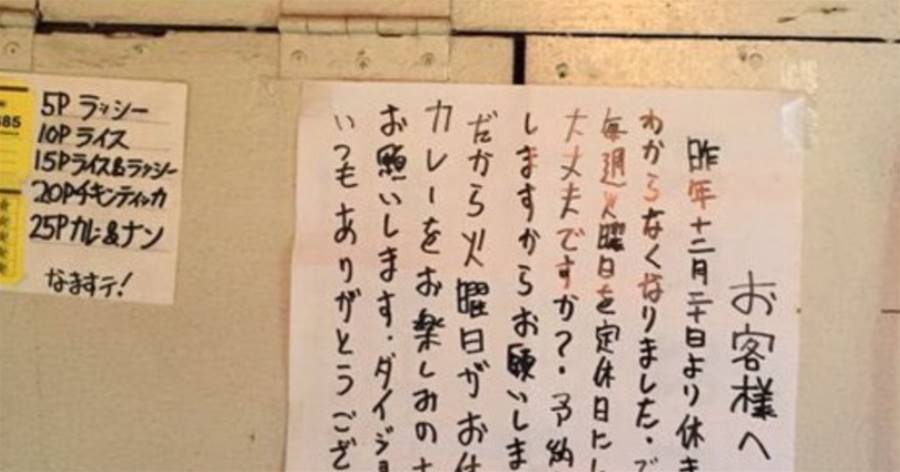 685
5P ラッシー
10P ライス
15Pライス&ラッシー
20Pチキンティッカ
25Pカレー&ナン
なますテ!
お客様へ
昨年十二月二十日より休ま
わからなくなりました.で
毎週火曜日を定休日にし
大丈夫ですか?.予約
しますからお願いしま
だから火曜日がお仕
カレーをお楽しみの
お願いします.ダイジョ
いつもありがとうござ